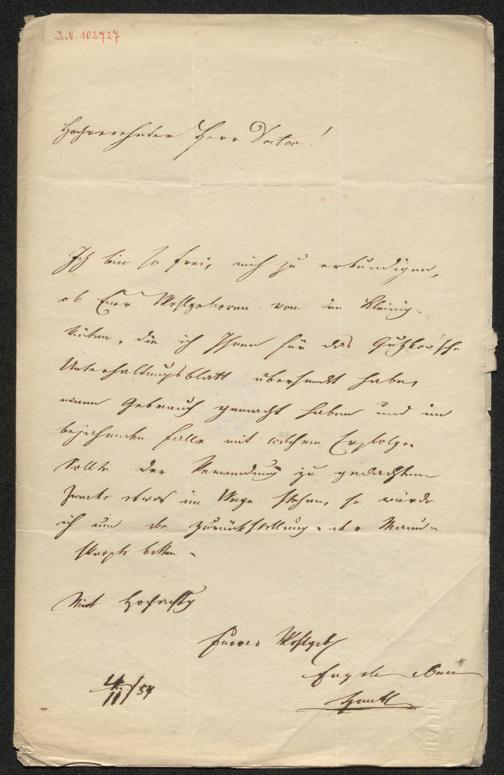 I.N. 102727
Hochverehrter Herr Doctor!
Ich bin so frei, mich zu erkundigen,
ob Euer Wohlgeboren von den Kleinig-
keiten, die ich Ihnen für das Gutzkow'sche
Unterhaltungsblatt übersandt habe,
einen Gebrauch gemacht haben und im
bejahenden Falle mit welchem Erfolge.
Sollte der Verwendung zu gedachtem
Zwecke etwas im Wege stehen, so würde
ich um die Zurückstellung der Manu-
skripte bitten.
Mit Hochachtg
Euer Wohlgeb